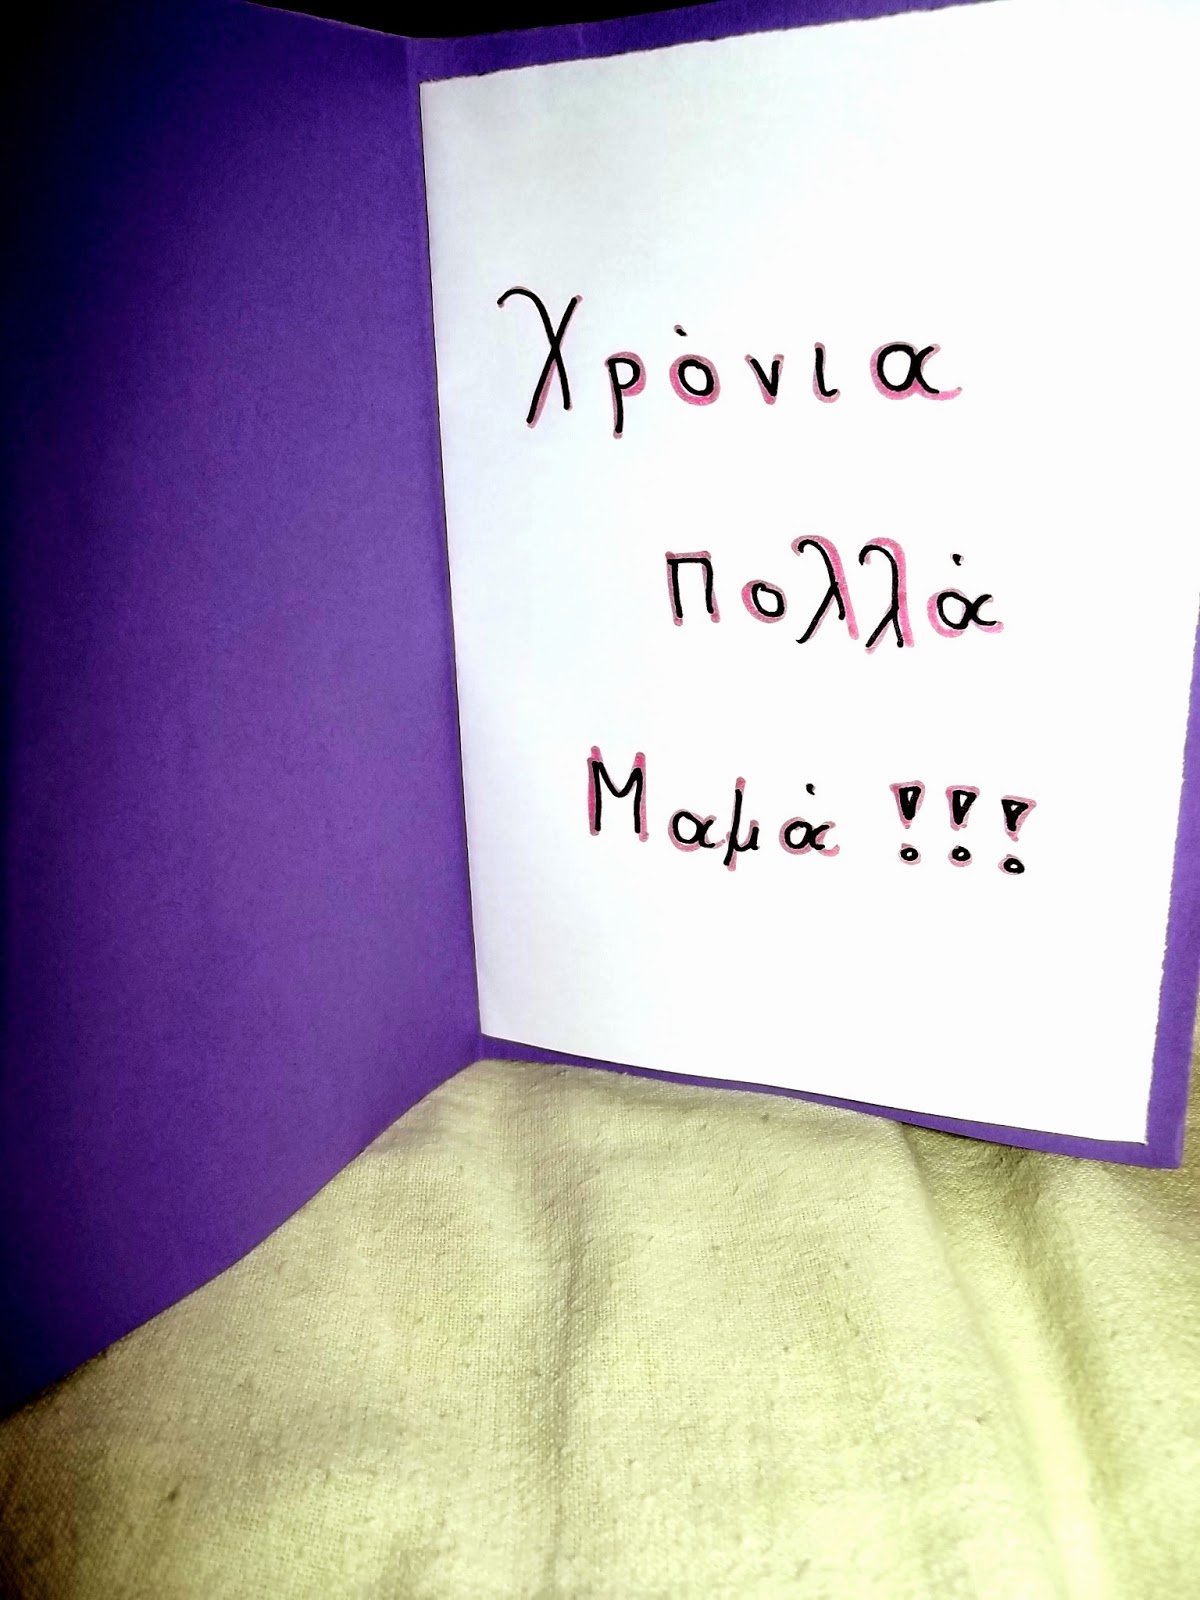 Χρόνια
Πολλά
Μαμά !!!